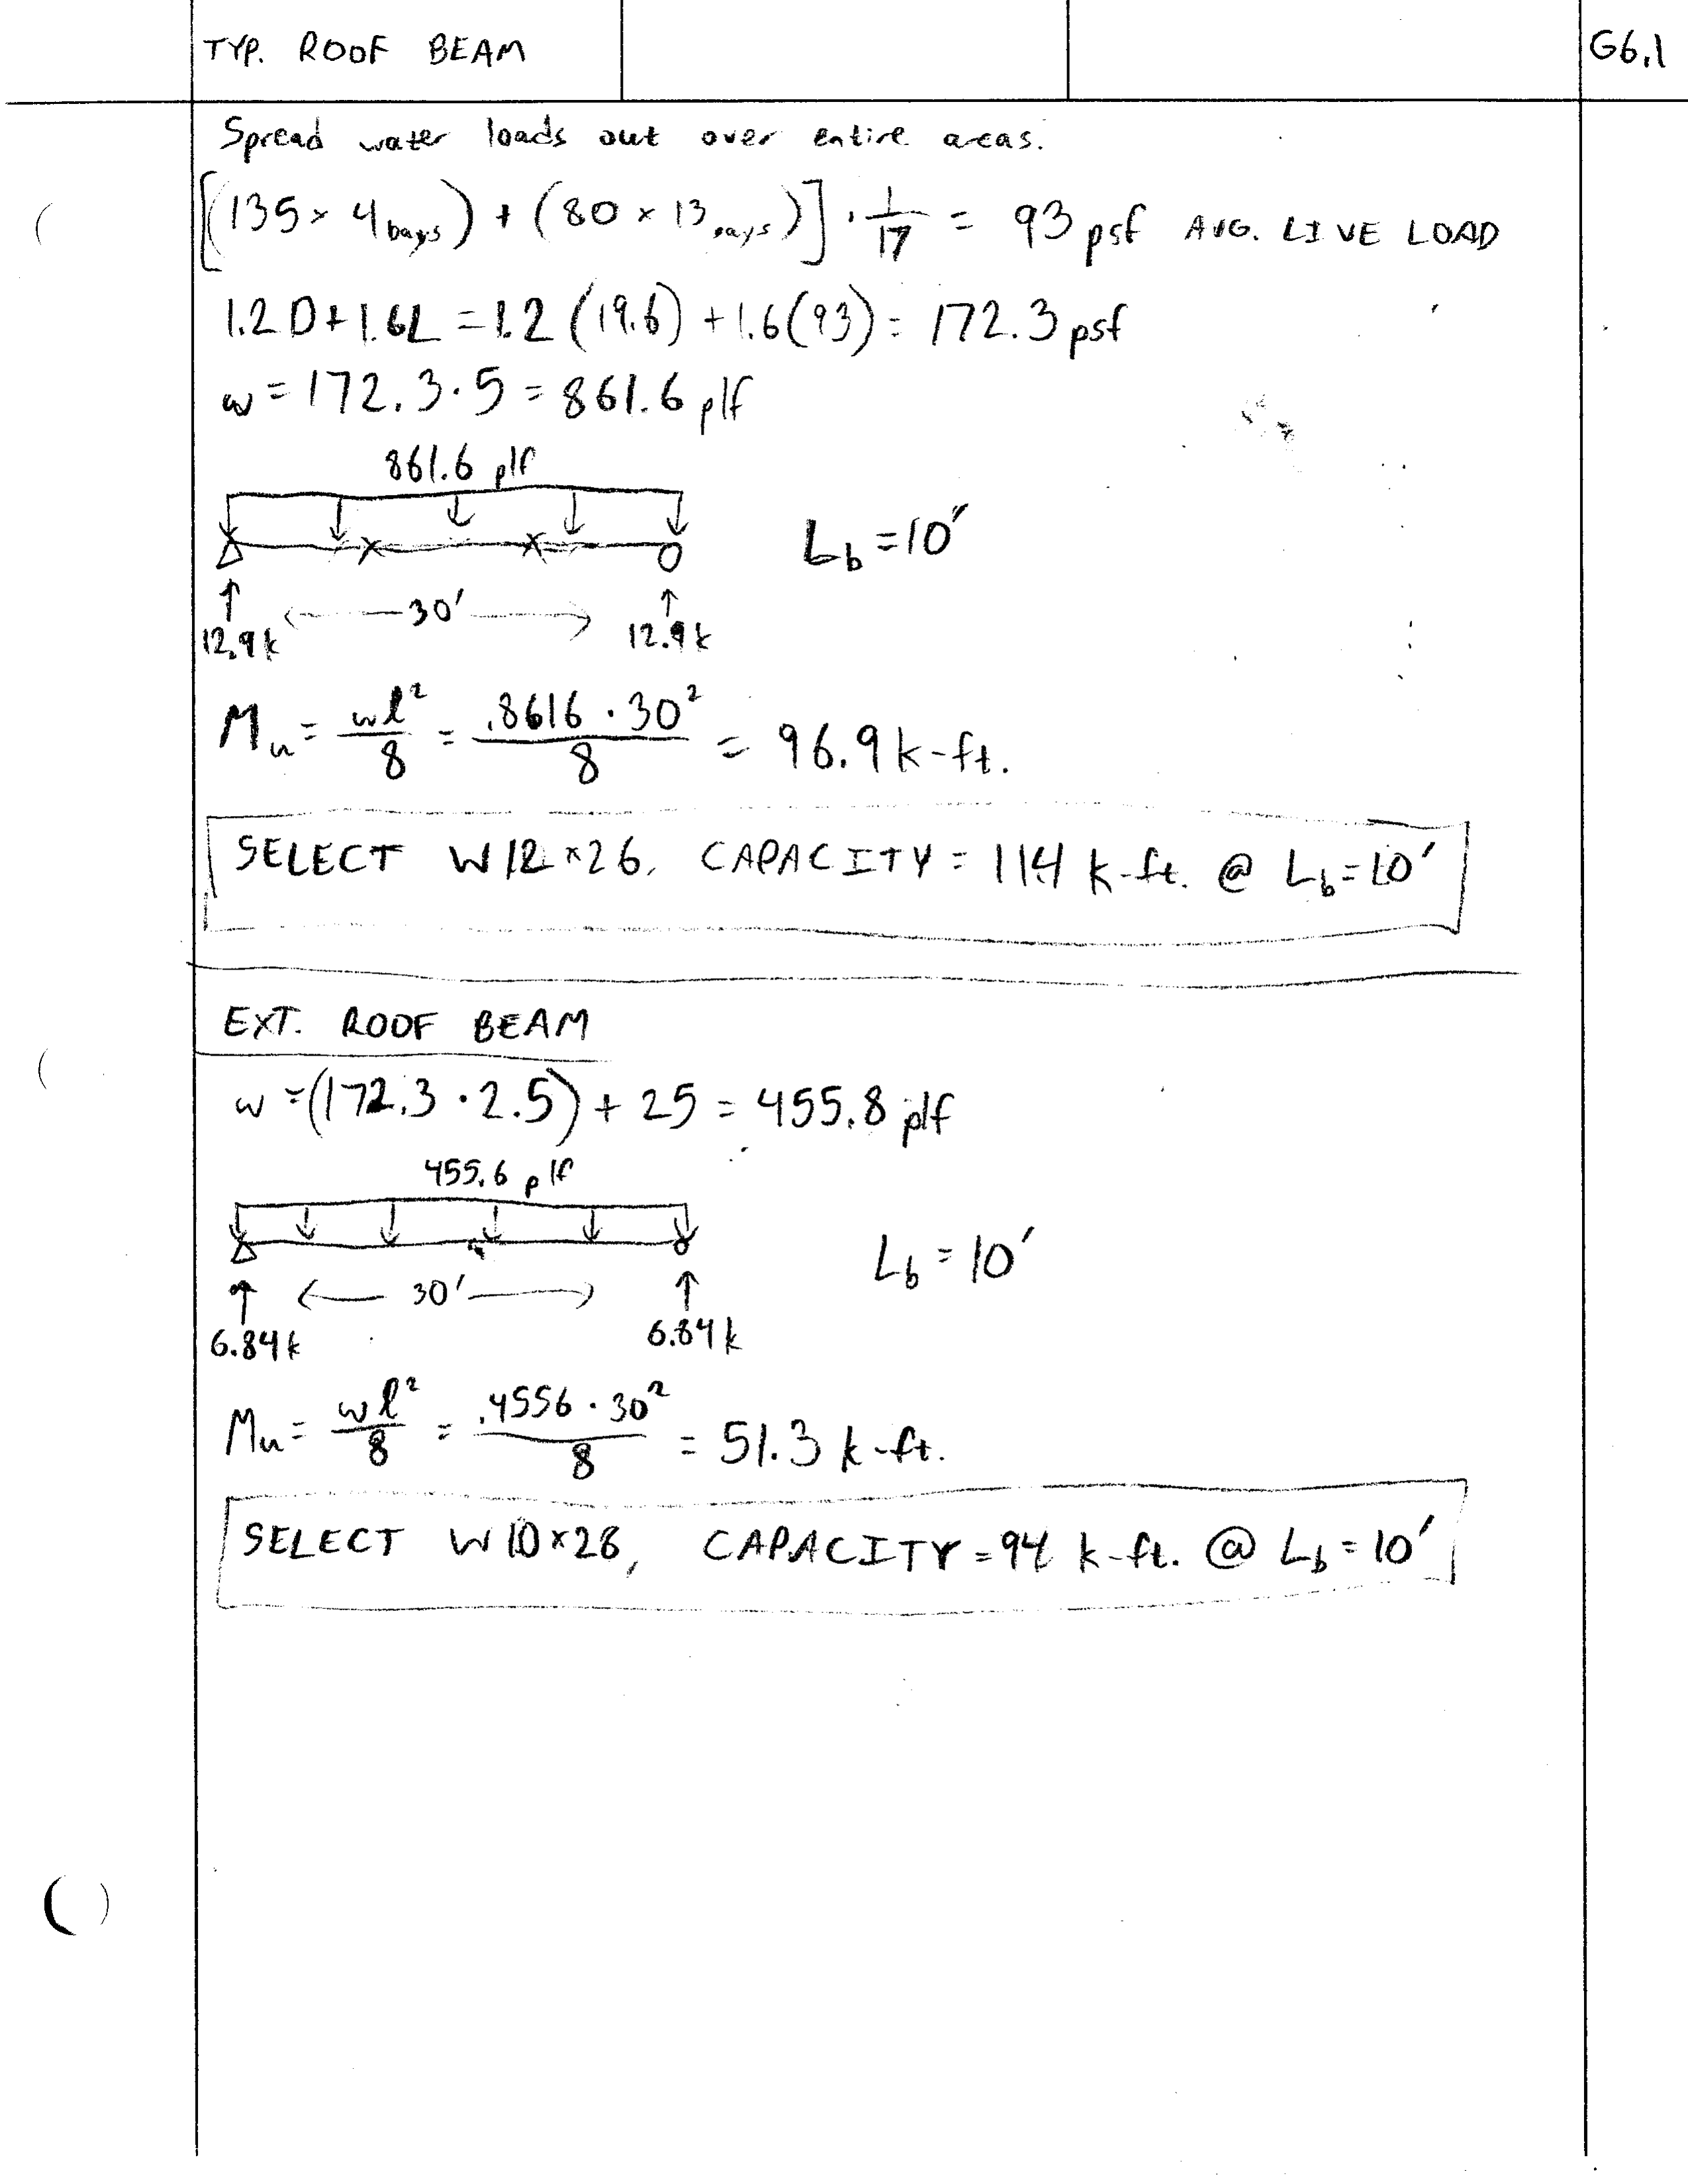 TYP. ROOF BEAM
G6.1
Spread water loads out over entire areas.
[(135 × 4 bays) + (80 × 13 bays)] · 1/17 = 93 psf AVG. LIVE LOAD
1.2D+1.6L = 1.2 (19.6) + 1.6(93) = 172.3 psf
w = 172.3 · 5 = 861.6 plf
861.6 plf
L_b = 10'
30'
12.9k 12.9k
M_u = wl²/8 = .8616 · 30²/8 = 96.9 k-ft.
SELECT W12×26, CAPACITY = 114 k-ft. @ L_b = 10'
EXT. ROOF BEAM
w = (172.3 · 2.5) + 25 = 455.8 plf
455.6 plf
L_b = 10'
30'
6.84k 6.84k
M_u = wl²/8 = .4556 · 30²/8 = 51.3 k-ft.
SELECT W10×26, CAPACITY = 94 k-ft. @ L_b = 10'